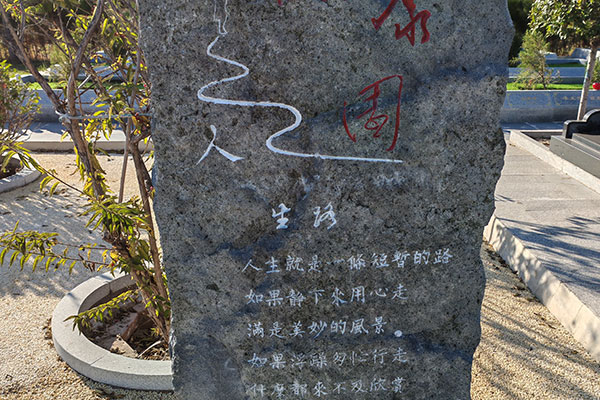 人
生路
人生就是一條短暫的路
如果靜下來用心走
滿是美妙的風景。
如果浮躁匆忙行走
什麼都來不及欣賞